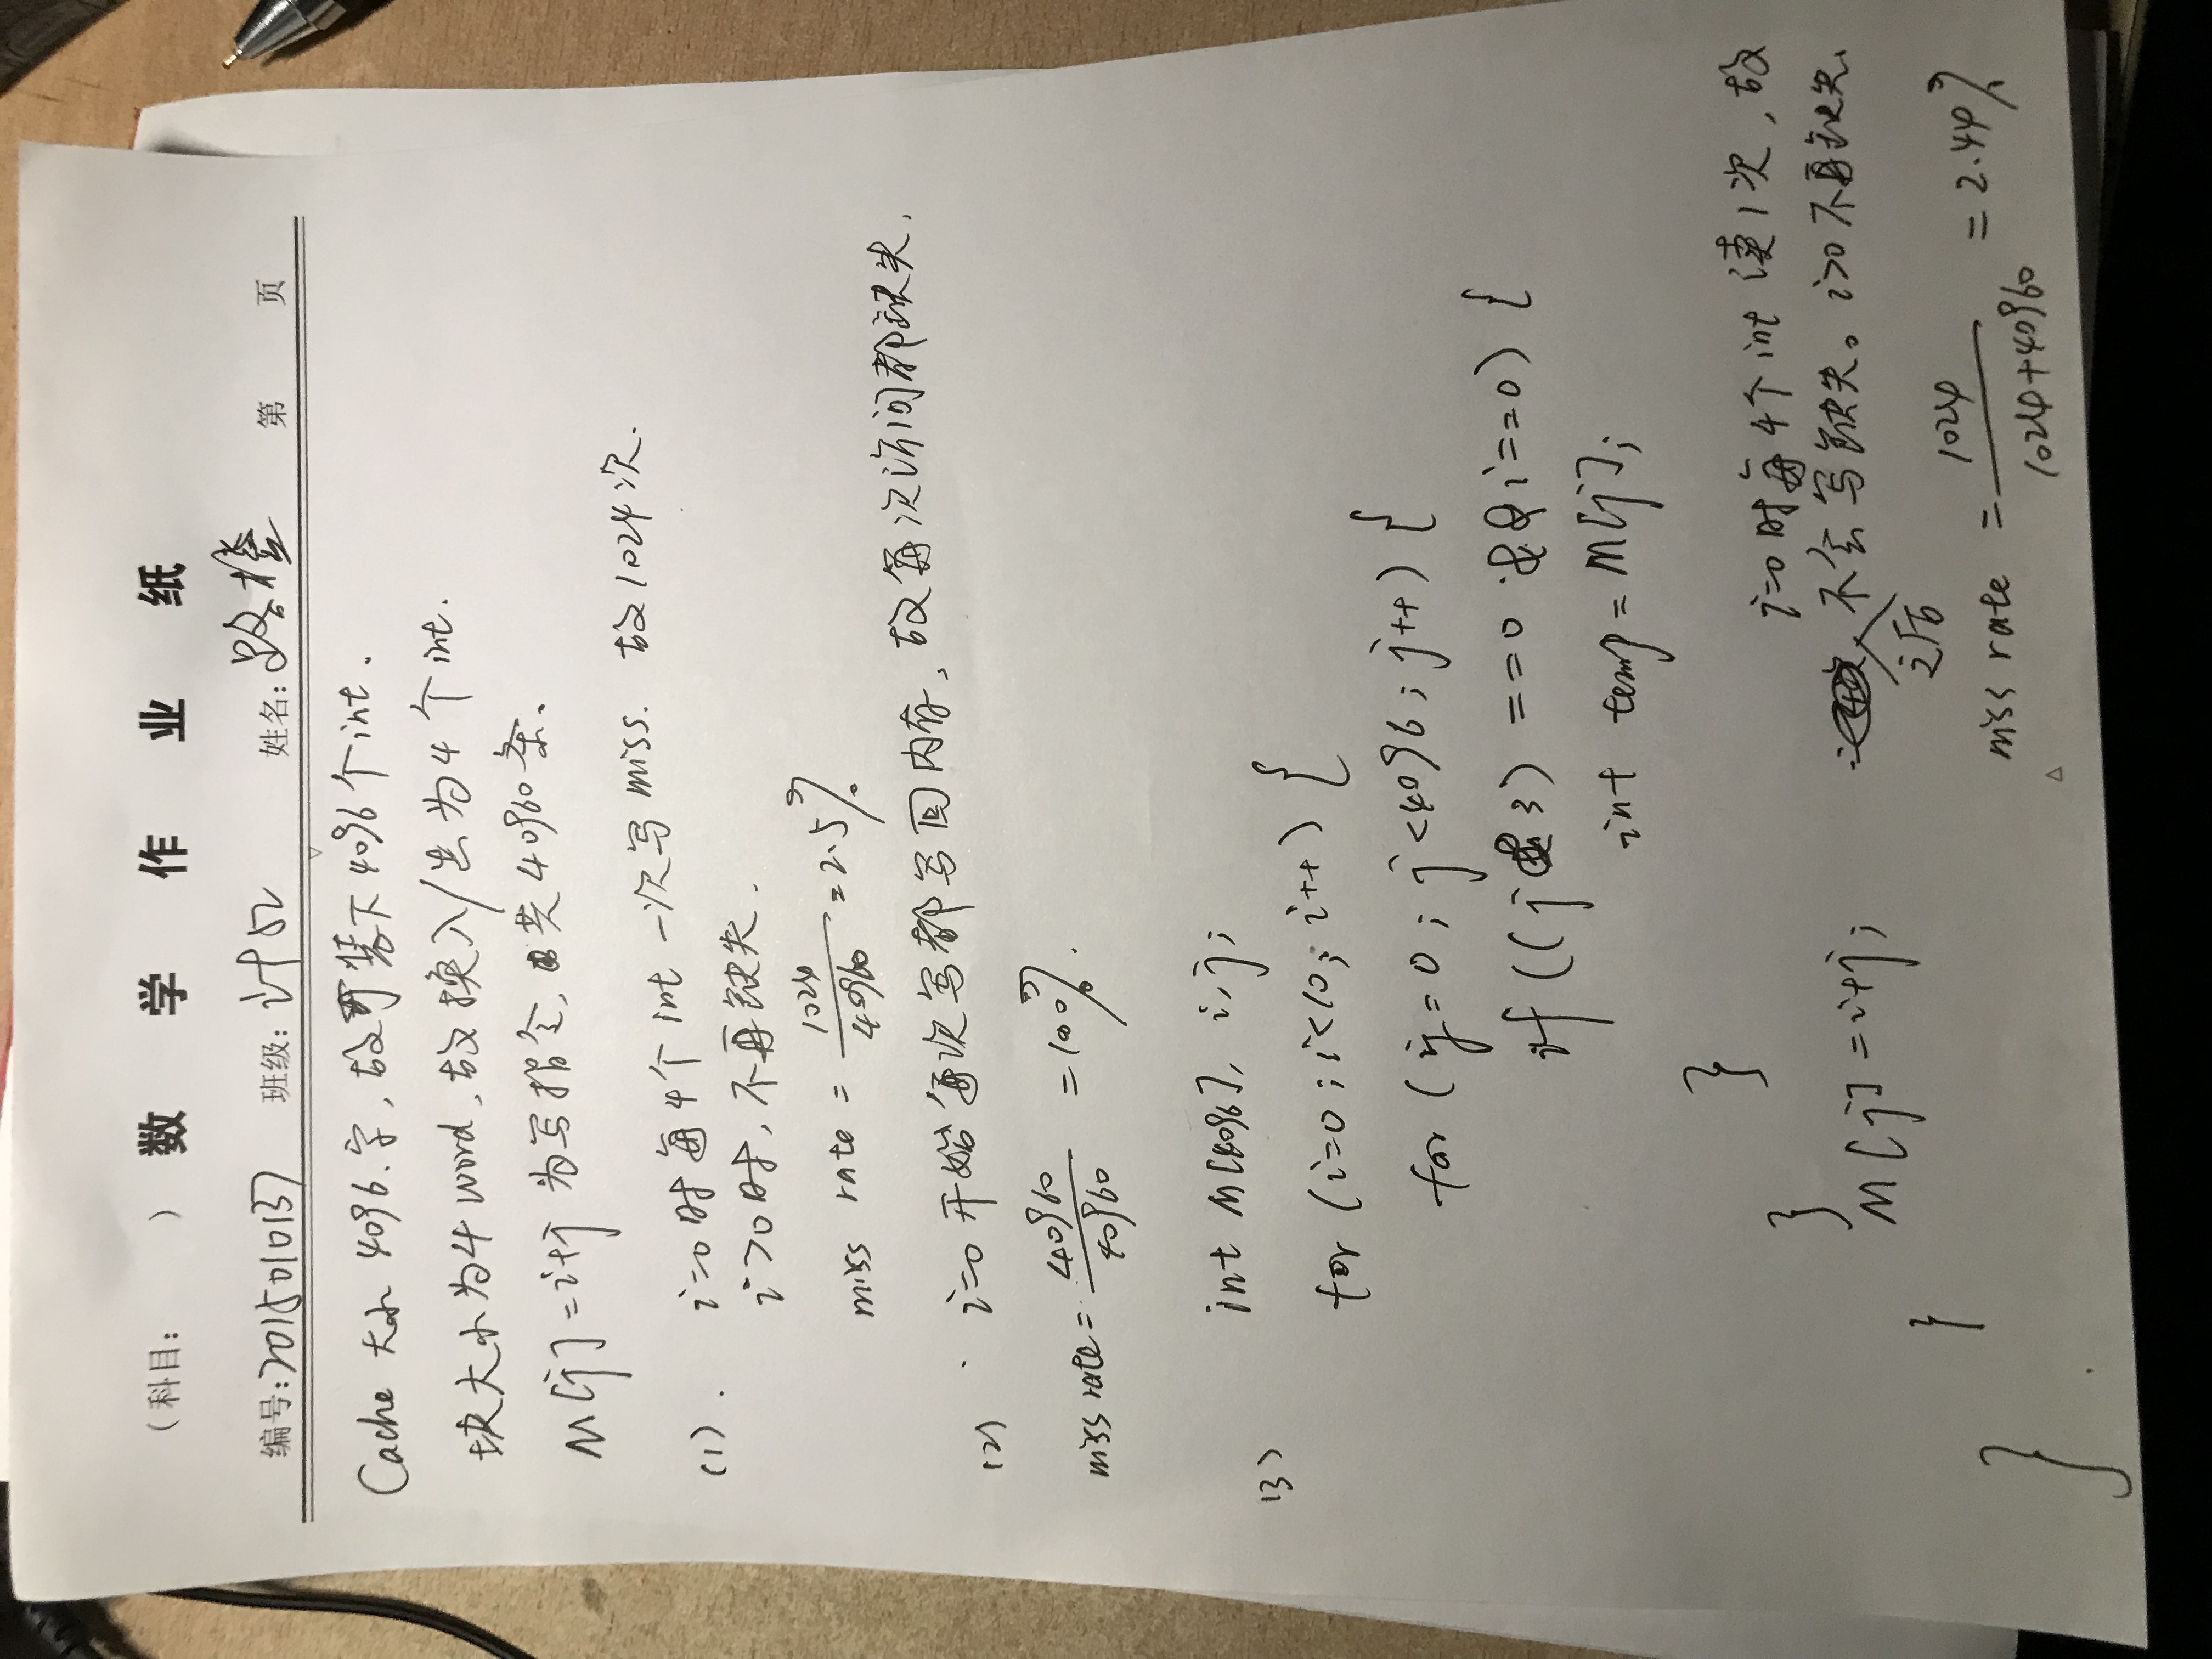 数 学 作 业 纸
（科目： ）
编号:2015010137 班级: 计52 姓名: 路橙 第 页
Cache 大小 4096字，故可装下4096个int.
块大小为4 word，故换入/出为4个int.
M[j]=i+j 为写指令，共40960条.
(1). i=0时每4个int一次写miss. 故1024次.
i>0时，不再缺失.
miss rate = 1024/40960 = 2.5%
(2) i=0开始每次写都写回内存，故每次访问都缺失.
miss rate = 40960/40960 = 100%.
(3) int M[4096], i, j;
for (i=0; i<10; i++) {
for (j=0; j<4096; j++) {
if ((j&3) == 0 && i==0) {
int temp = M[j];
}
i=0时每4个int读1次，故
之后不会写缺失。i>0不再缺失.
}
M[j]=i+j;
miss rate = 1024/(1024+40960) = 2.44%
}
}